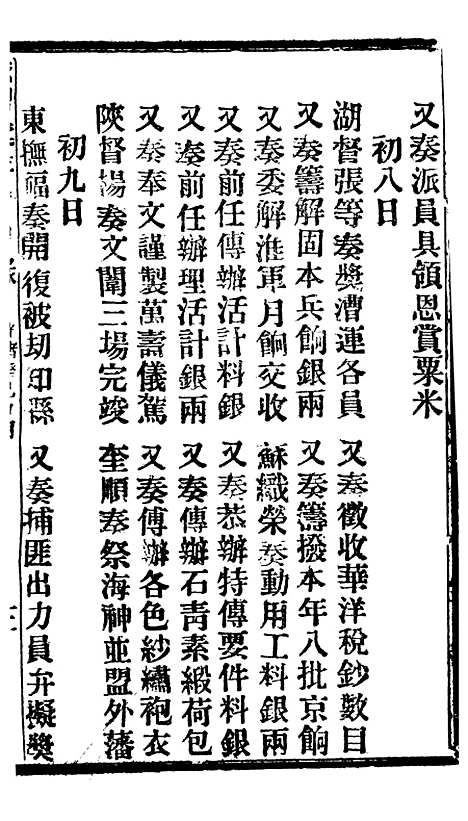 又奏派員具領恩賞粟米
初八日
湖督張等奏獎漕運各員
又奏徵收華洋税鈔數目
又奏籌解固本兵餉銀兩
又奏籌撥本年八批京餉
又奏委解淮軍月餉交收
蘇織榮奏動用工料銀兩
又奏前任傳辦活計料銀
又奏恭辦特傳要件料銀
又奏前任辦理活計銀兩
又奏傳辦石青素緞荷包
又奏奉文謹製萬壽儀駕
又奏傳辦各色紗繡袍衣
陝督楊奏文闈三場完竣
奎順奏祭海神並盟外藩
初九日
東撫福奏開復被刧印縣
又奏捕匪出力員弁擬獎